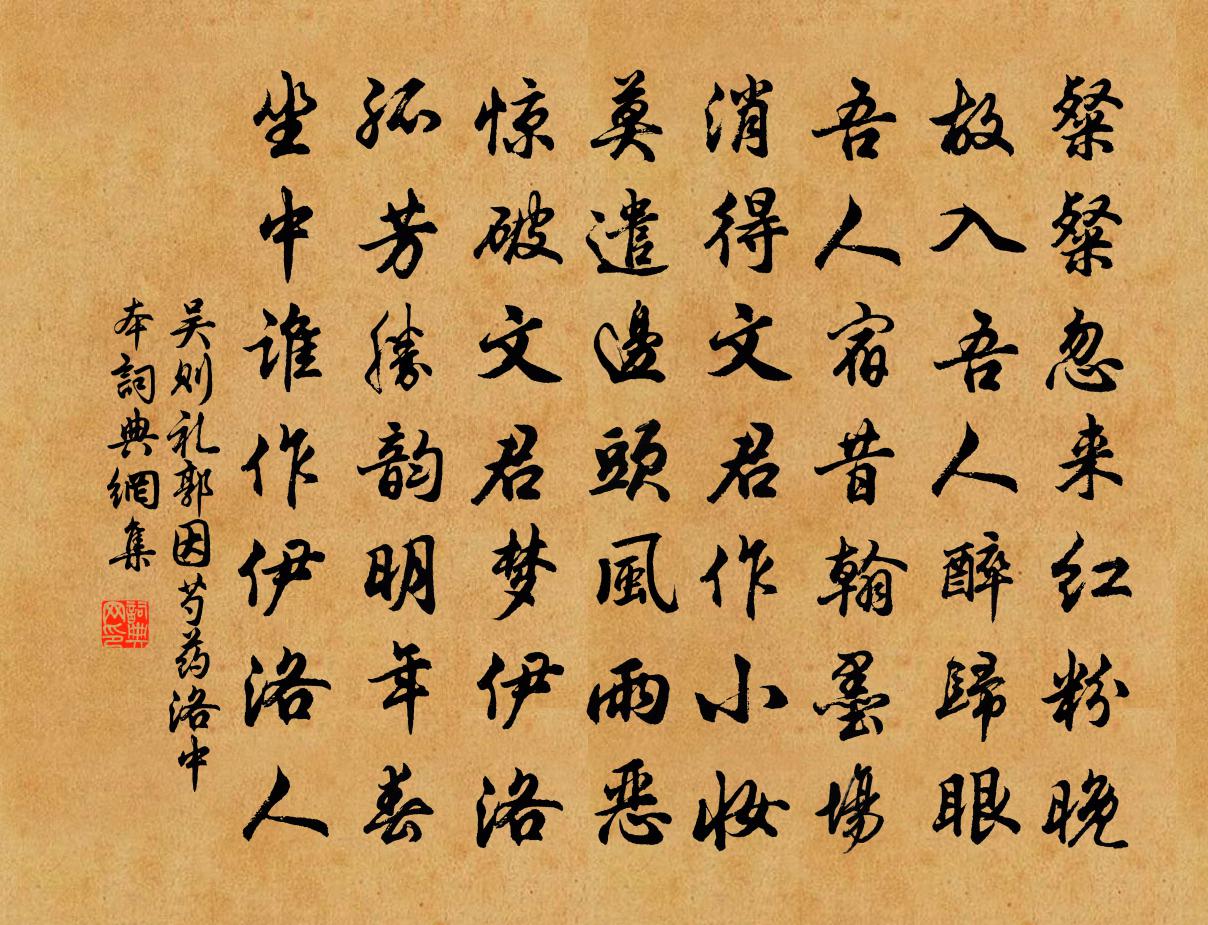 粲粲忽来红粉晚
故入吾人醉歸眼
吾人宿昔翰墨場
消得文君作小妝
莫遣邊頭風雨惡
惊破文君梦伊洛
孤芳勝韵明年春
坐中谁作伊洛人
吴则礼郭因芍药洛中
本詞典網集
詞典网印